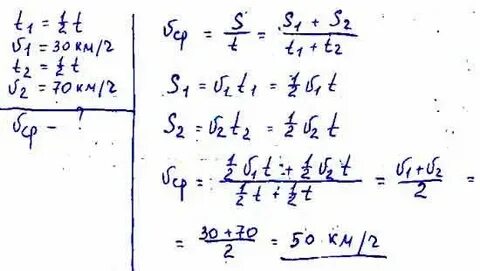 t₁ = ½ t
v₁ = 30 км/ч
t₂ = ½ t
v₂ = 70 км/ч
vср – ?
vср = S/t = (S₁ + S₂)/(t₁ + t₂)
S₁ = v₁ t₁ = ½ v₁ t
S₂ = v₂ t₂ = ½ v₂ t
vср = (½ v₁ t + ½ v₂ t)/(½ t + ½ t) = (v₁ + v₂)/2 =
= (30 + 70)/2 = 50 км/ч